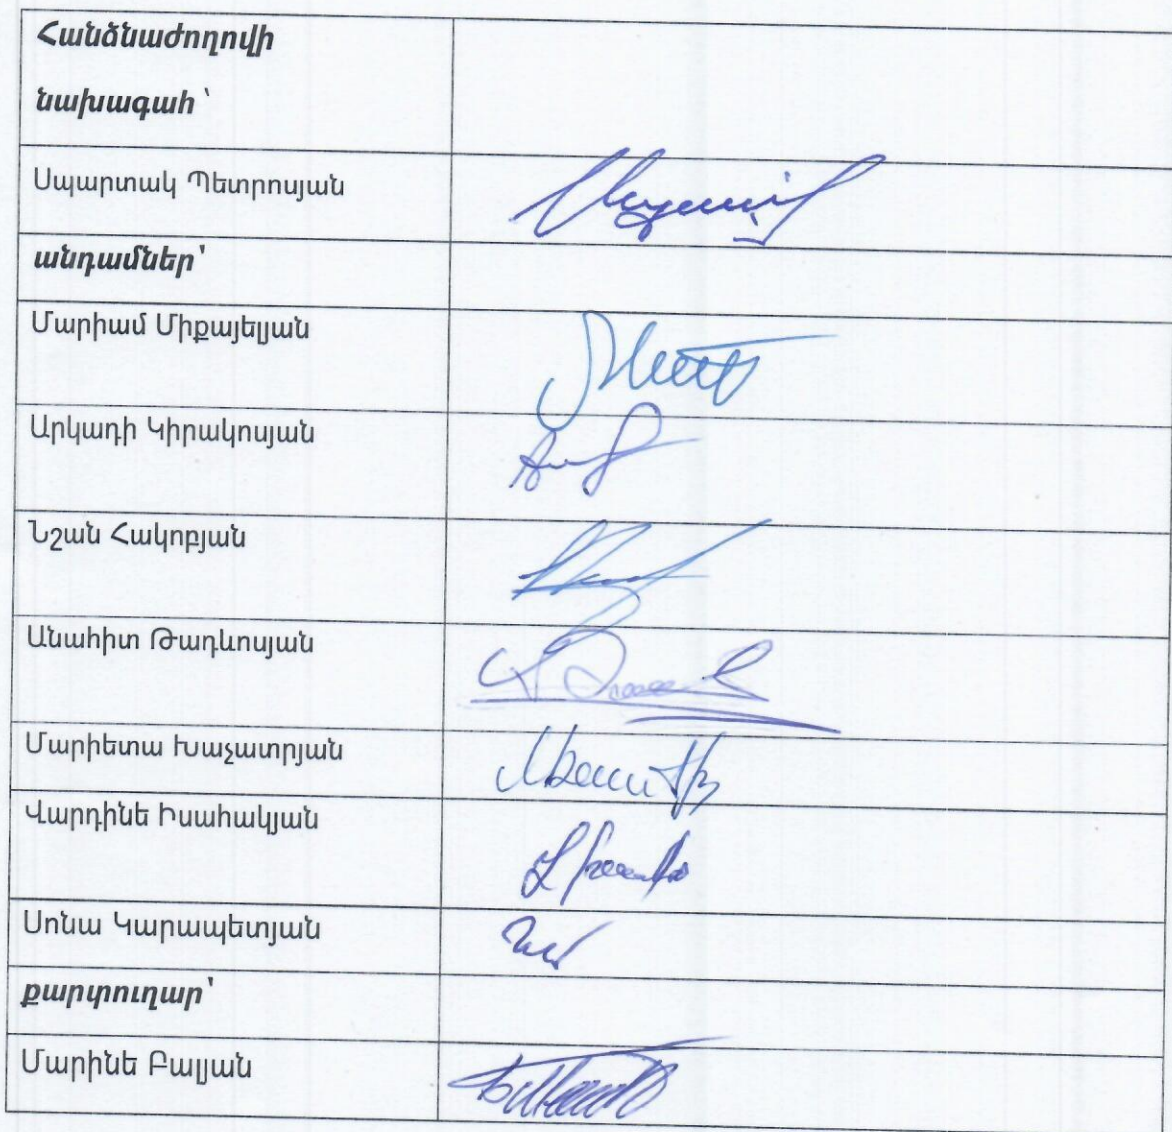 Հանձնաժողովի
նախագահ՝
Սպարտակ Պետրոսյան
անդամներ՝
Մարիամ Միքայելյան
Արկադի Կիրակոսյան
Նշան Հակոբյան
Անահիտ Թադևոսյան
Մարիետա Խաչատրյան
Վարդինե Իսահակյան
Սոնա Կարապետյան
քարտուղար՝
Մարինե Բալյան